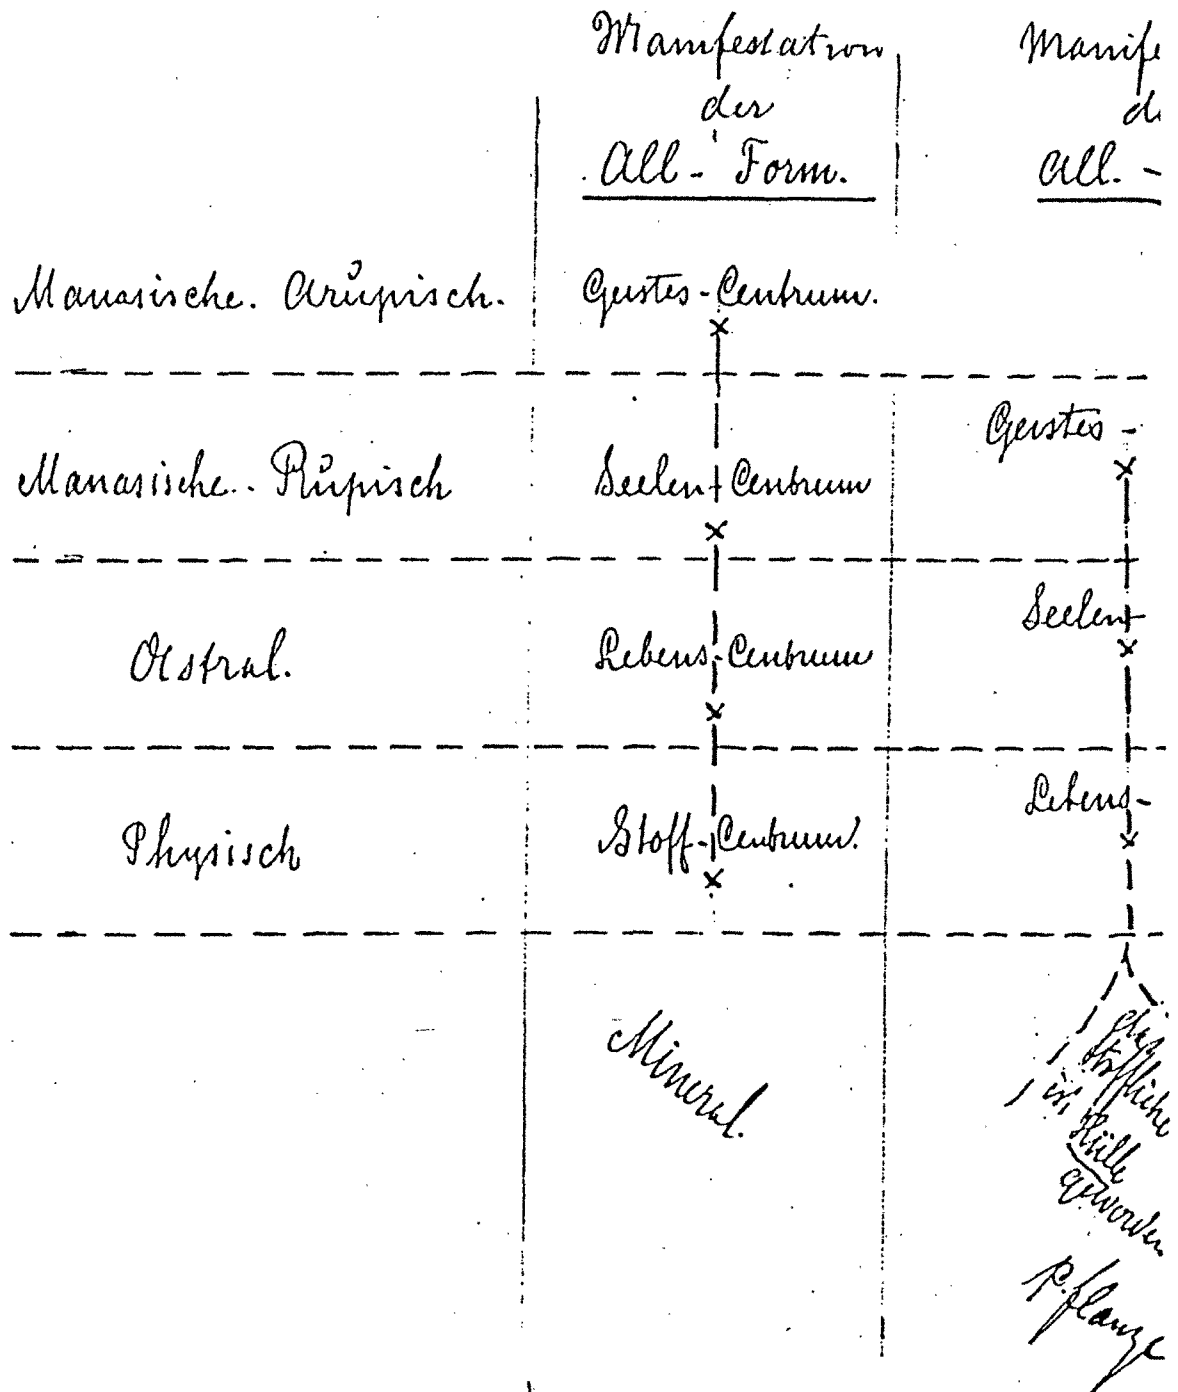 Manifestation
der
All- Form.
Manife
de
All. -
Manasische. Arūpisch.
Geistes-Centrum.
Manasische.. Rūpisch
Seelen-Centrum
Geistes-
Astral.
Lebens-Centrum
Seelen-
Physisch
Stoff-Centrum.
Lebens-
Mineral.
das
Stoffliche
ist Hülle
geworden
Pflanze